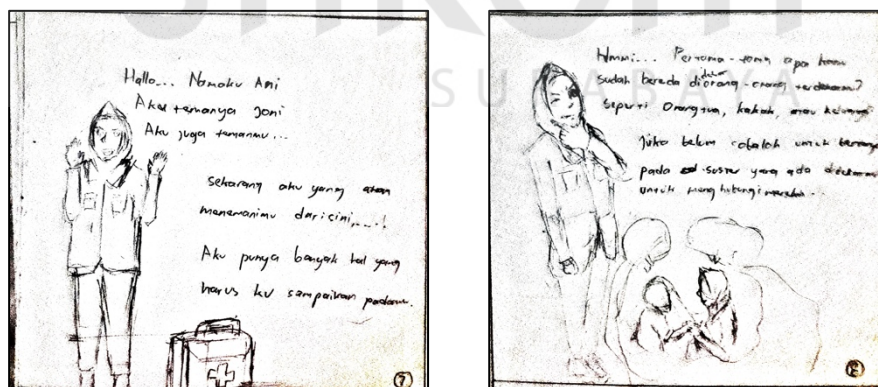 Hallo... Namaku Ani
Aku temanya Joni
Aku juga temanmu...
sekarang aku yang akan
menemanimu dari sini....!
Aku punya banyak hal yang
harus ku sampaikan padamu.
7
SURABAYA
Hmmi... Pertama-tama apa kamu
sudah berada dekat diorang-orang terdekatmu?
seperti Orangtua, kakak, atau keluarga
jika belum cobalah untuk bertanya
pada suster yang ada didekatmu
untuk menghubungi mereka...